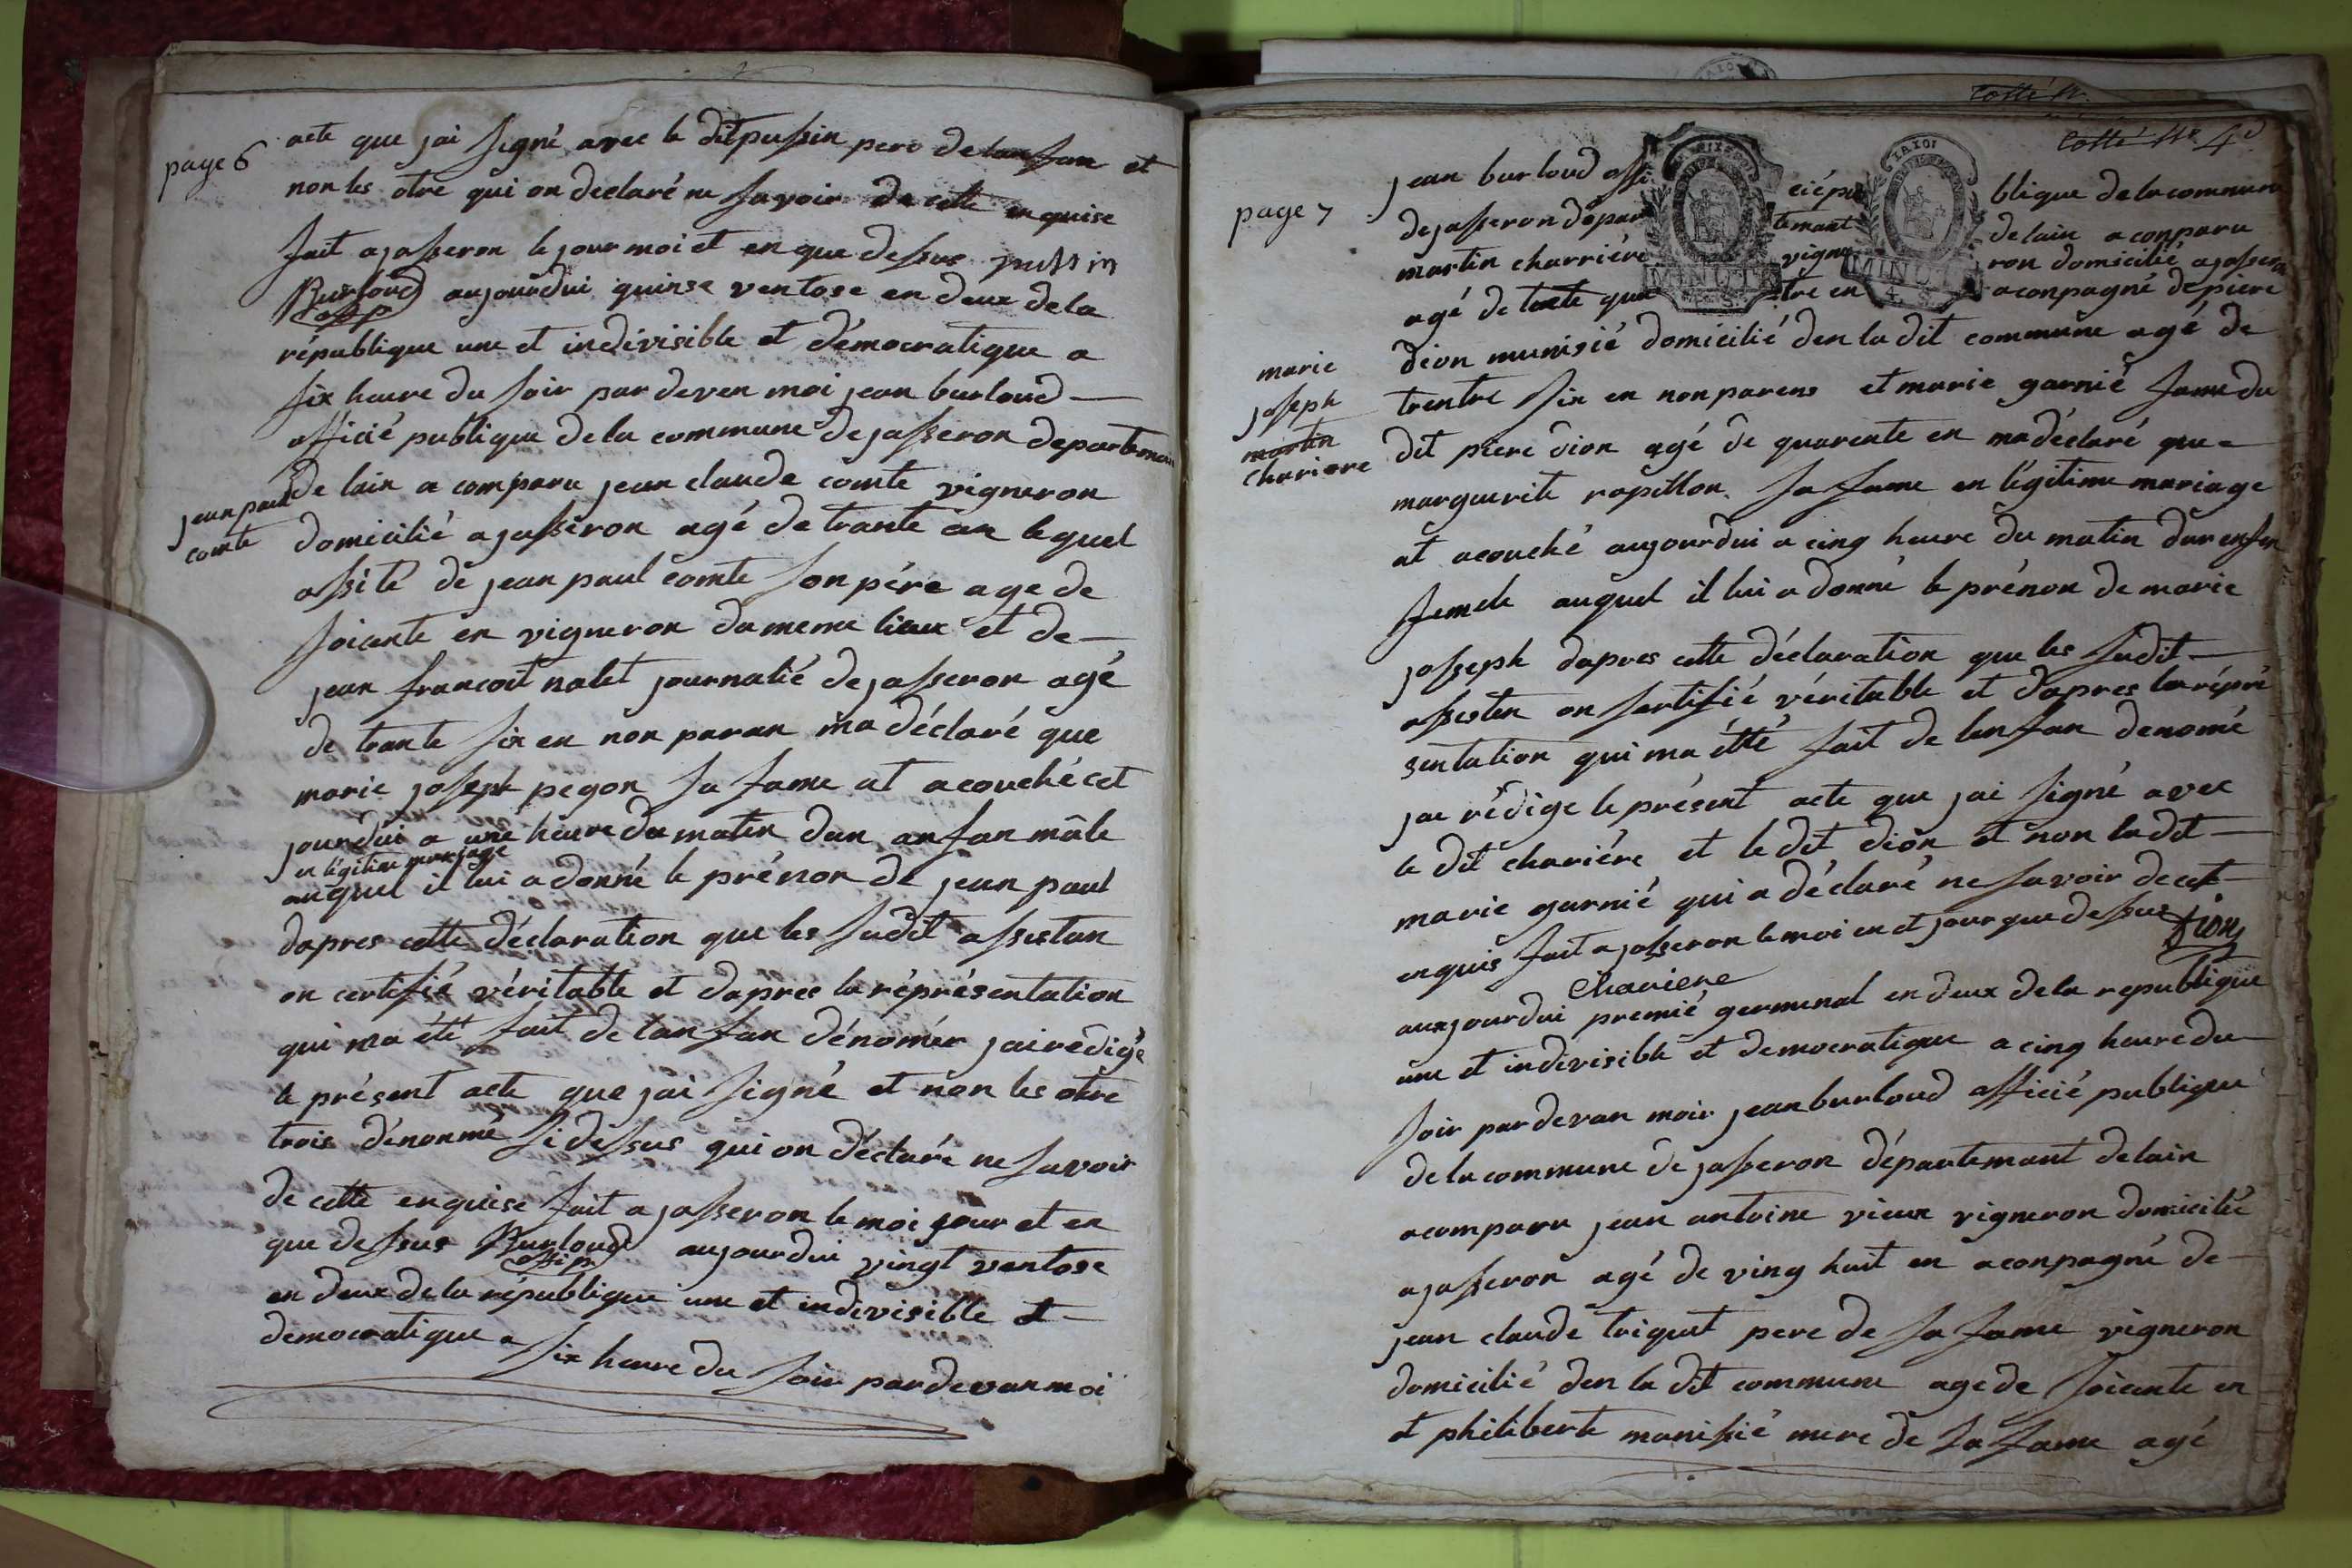 page 6
acte que jai signé avec le dit pussin pere de lanfan et
non les otre qui on declaré ne savoir de cette enquise
fait a jasseron le jour moi et en que dessus pussin
Burloud offp aujourdui quinse ventose en deux de la
république une et indivisible et démocratique a
six heure du soir par deven moi jean burloud
officié publique de la commune de jasseron departeman
jean paul
comte
de lain a comparu jean claude comte vigneron
domicilié a jasseron agé de trante an lequel
assité de jean paul comte son père age de
soicante en vigneron du meme lieux et de
jean francoit nalet journalié de jasseron agé
de trante six en non paran ma déclaré que
marie joseph pegon sa fame at acouché cet
jourdui a une heure du maten dun anfan mâle
en légitime mariage
auquel il lui a donné le prénon de jean paul
dapres cette déclaration que les sudit assistan
on certifié véritable et dapres la réprésentation
qui ma été fait de lanfan dénomér jai redigé
le présent acte que jai signé et non les otre
trois dénonmé si dessus qui on déclaré ne savoir
de cette enquise fait a jasseron le moi jour et en
que dessus Burloud offip aujourdui vingt ventose
en deux de la république une et indivisible et
democratique a six heure du soir pardevan moi
Cotté
Cotté 4e
page 7
jean burloud offi cié pu blique de la commune
de jasseron depar temant de lain a conparu
martin charriére vigne ron domicilié a jasseron
agé de trante qua tre en aconpagné de piere
dion munisié domicilié den la dit commune agé de
marie
joseph
martin
chariere
trentre six en non parens et marie garnié fame du
dit piere dion agé de quarente en ma déclaré que
marguerite ropillon sa fame en légitime mariage
at acouché aujourdui a cinq heure du matin dun enfen
femele auquel il lui a donné le prénon de marie
josseph dapres cette déclaration que les sudit
assisten on sertifié véritable et dapres la répré
sentation qui ma étté fait de lenfan denomé
jae rédige le présent acte que jai signé avec
le dit chariére et le dit dion et non la dit
marie garnié qui a déclaré ne savoir de cet
enquis fait a jasseron le moi en et jour que dessus dion
chariere
aujourdui premié germenal en deux de la republique
une et indivisible et democratique a cinq heure du
soir pardevan moir jean burloud officié publique
de la commune de jasseron département de lain
a comparu jean antoine vieux vigneron domicilié
a jasseron agé de ving huit en aconpagné de
jean claude triquet pere de sa fame vigneron
domicilié den la dit commune age de soicante en
et philiberte manisié mere de sa fame agé